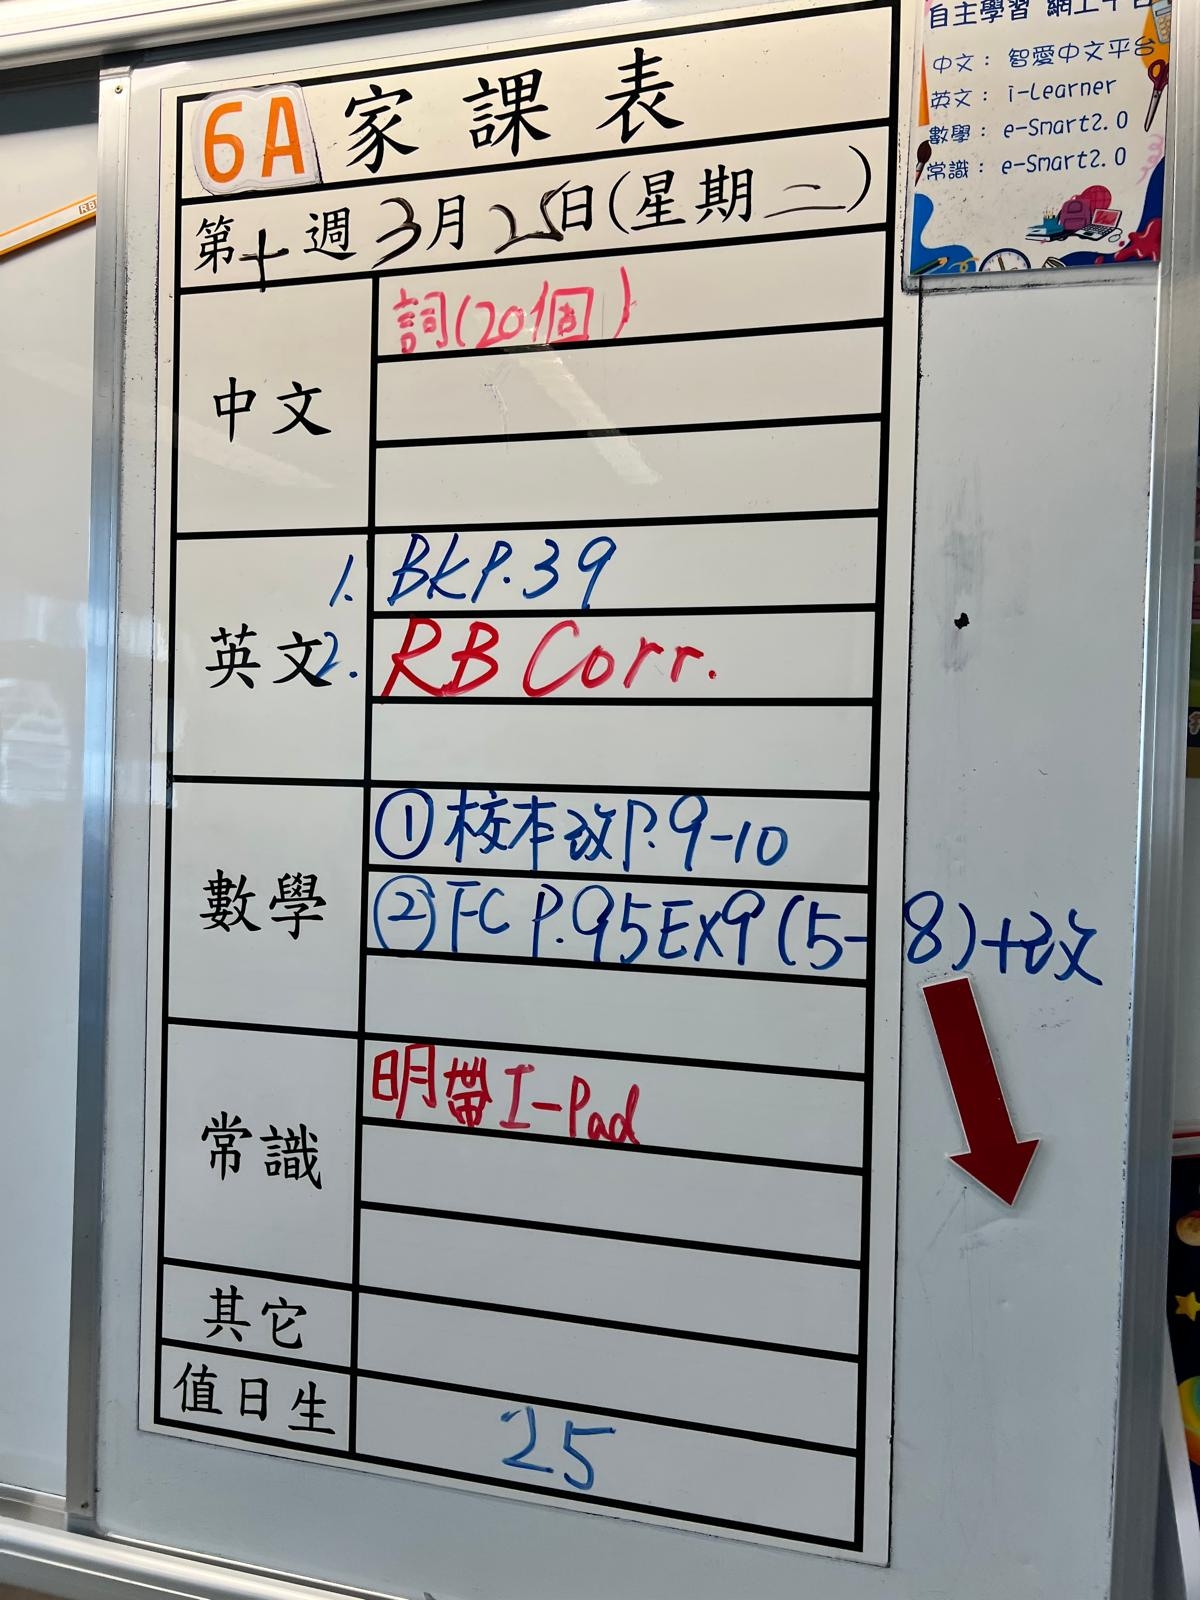 6A 家課表
第十週 3月25日(星期二)
中文
詞(20個)
英文
1. BK P.39
2. RB Corr.
數學
① 校本改P.9-10
② FC P.95 Ex9 (5-8)+改
常識
明帶I-Pad
其它
值日生
25
自主學習 網上平台
中文： 智愛中文平台
英文： i-Learner
數學： e-Smart2.0
常識： e-Smart2.0
RB